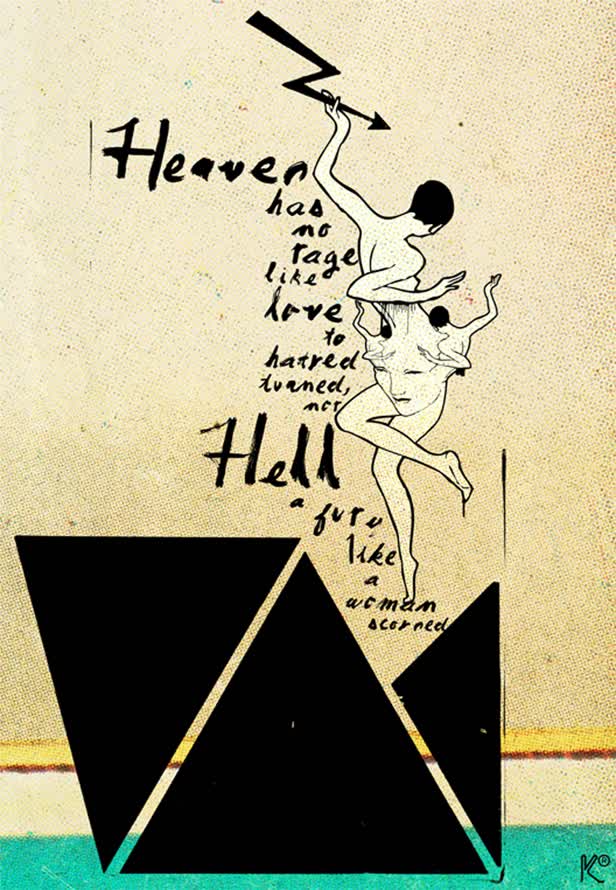 Heaven
has
no
rage
like
love
to
hatred
turned,
nor
Hell
a
fury
like
a
woman
scorned
K®